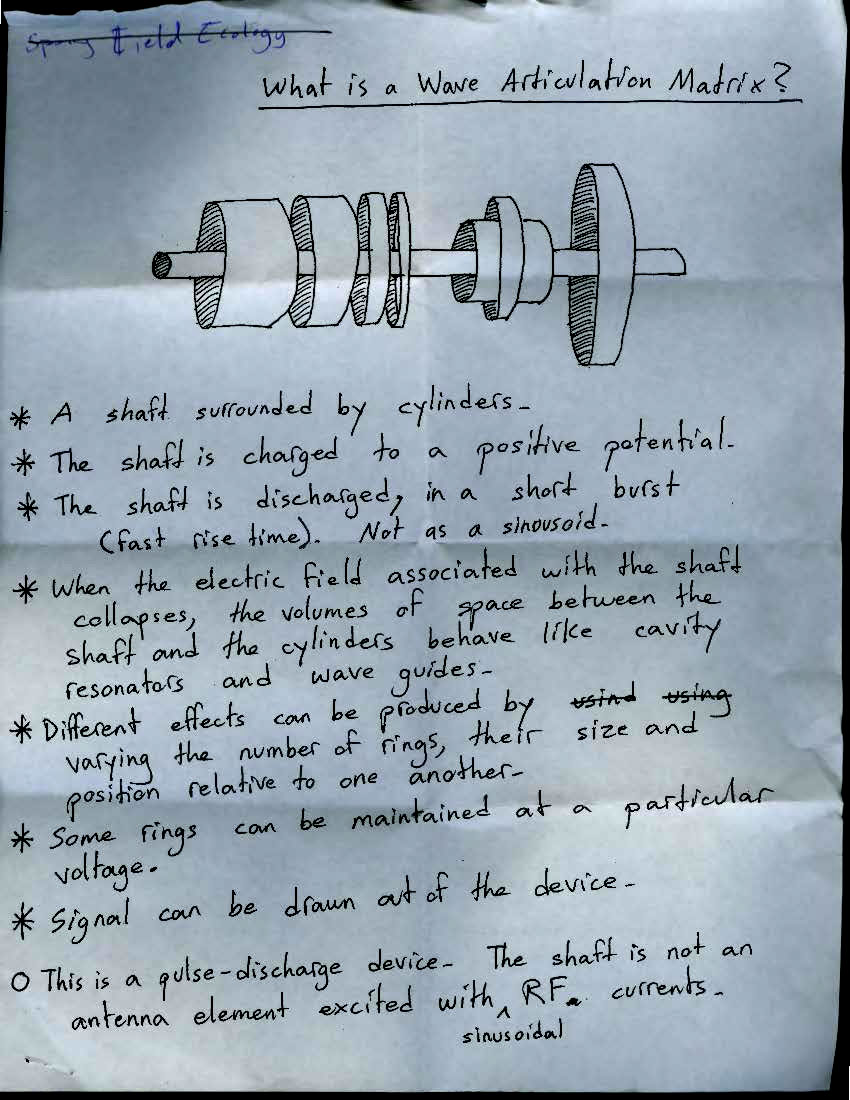 Field Ecology
What is a Wave Articulation Matrix?
* A shaft surrounded by cylinders-
* The shaft is charged to a positive potential-
* The shaft is discharged, in a short burst
(fast rise time). Not as a sinousoid-
* When the electric field associated with the shaft
collapses, the volumes of space between the
shaft and the cylinders behave like cavity
resonators and wave guides-
* Different effects can be produced by usind using
varying the number of rings, their size and
position relative to one another-
* Some rings can be maintained at a particular
voltage.
* Signal can be drawn out of the device-
O This is a pulse-discharge device- The shaft is not an
antenna element excited with ^ RF currents-
sinusoidal